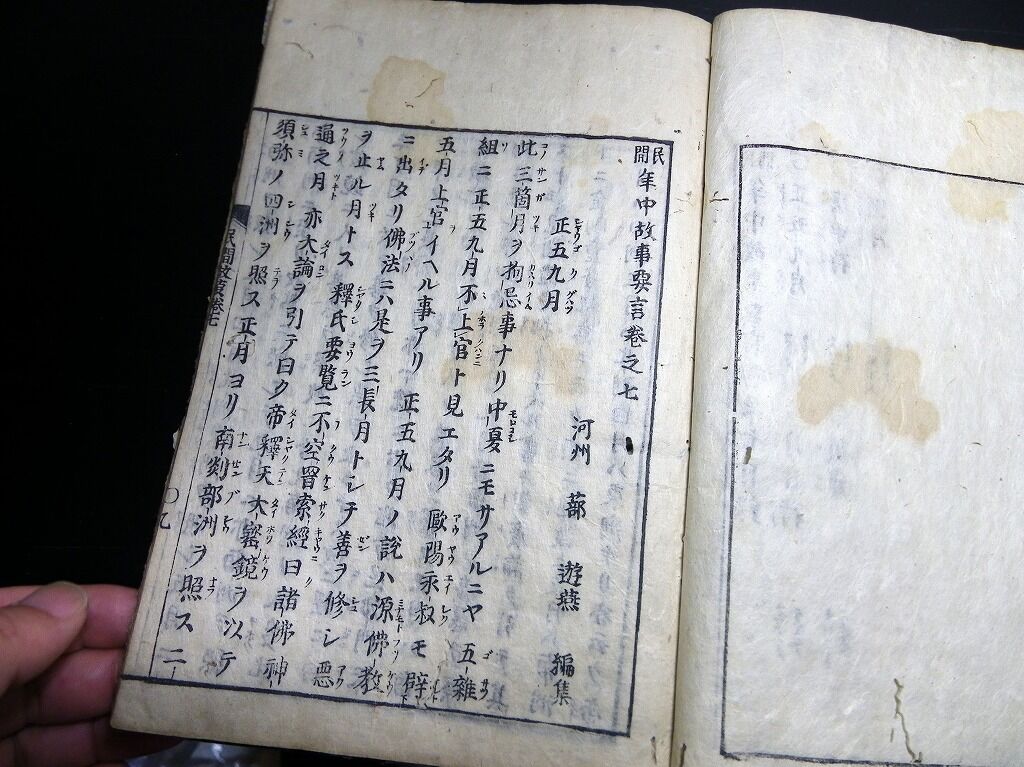 民間年中故事要言卷之七
河州 蔀 遊燕 編集
正五九月
此三箇月ヲ拘忌事ナリ中夏ニモサアルニヤ五雜
組ニ正五九月不上官ト見エタリ歐陽永叔モ辟
五月上官イヘル事アリ正五九月ノ說ハ源佛敎
ニ出タリ佛法ニハ是ヲ三長月トシテ善ヲ修シ惡
ヲ止ル月トス釋氏要覽ニ不空罥索經曰諸佛神
通之月亦大論ヲ引テ曰ク帝釋天大寶鏡ヲ以テ
須弥ノ四洲ヲ照ス正月ヨリ南剡部洲ヲ照ス二
民間故事卷七